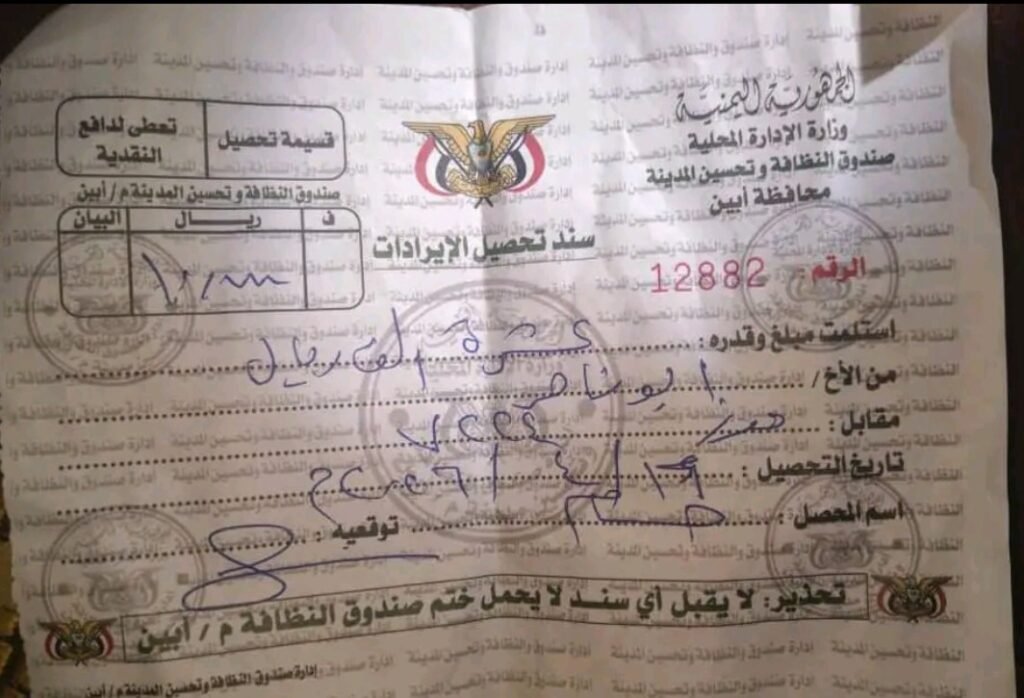 الجمهورية اليمنية
وزارة الإدارة المحلية
صندوق النظافة وتحسين المدينة
محافظة أبين
قسيمة تحصيل
تعطى لدافع النقدية
صندوق النظافة وتحسين المدينة م/أبين
ف ريـــال البيان
١٠/
سند تحصيل الإيرادات
الرقم: 12882
استلمت مبلغ وقدره: عشرة ألف ريال
من الأخ/ ابو شاهر
مقابل:
تاريخ التحصيل:
اسم المحصل: توقعيه:
تحذير: لا يقبل أي سند لا يحمل ختم صندوق النظافة م/أبين
إدارة صندوق والنظافة وتحسين المدينة م/أبين